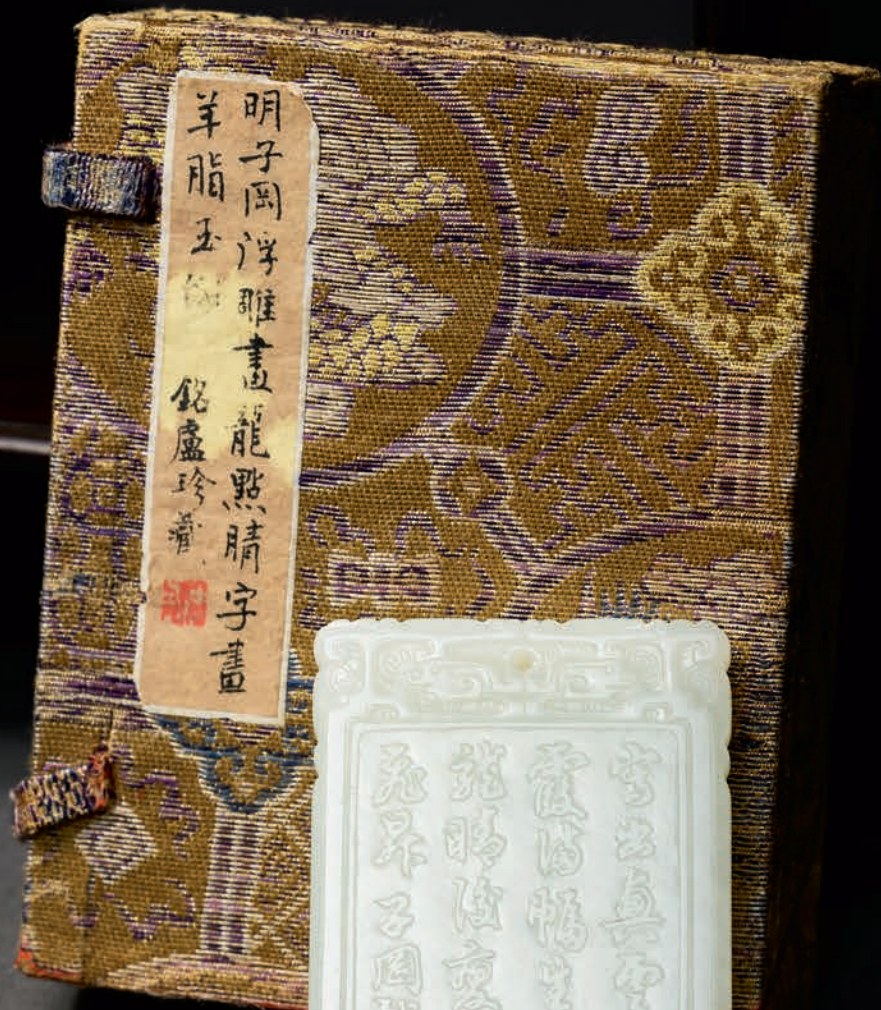 明子岡浮雕畫龍點睛字畫
羊脂玉
銘盧珍藏
寫出真雲
霞滿幅生
龍睛
飛昇子岡